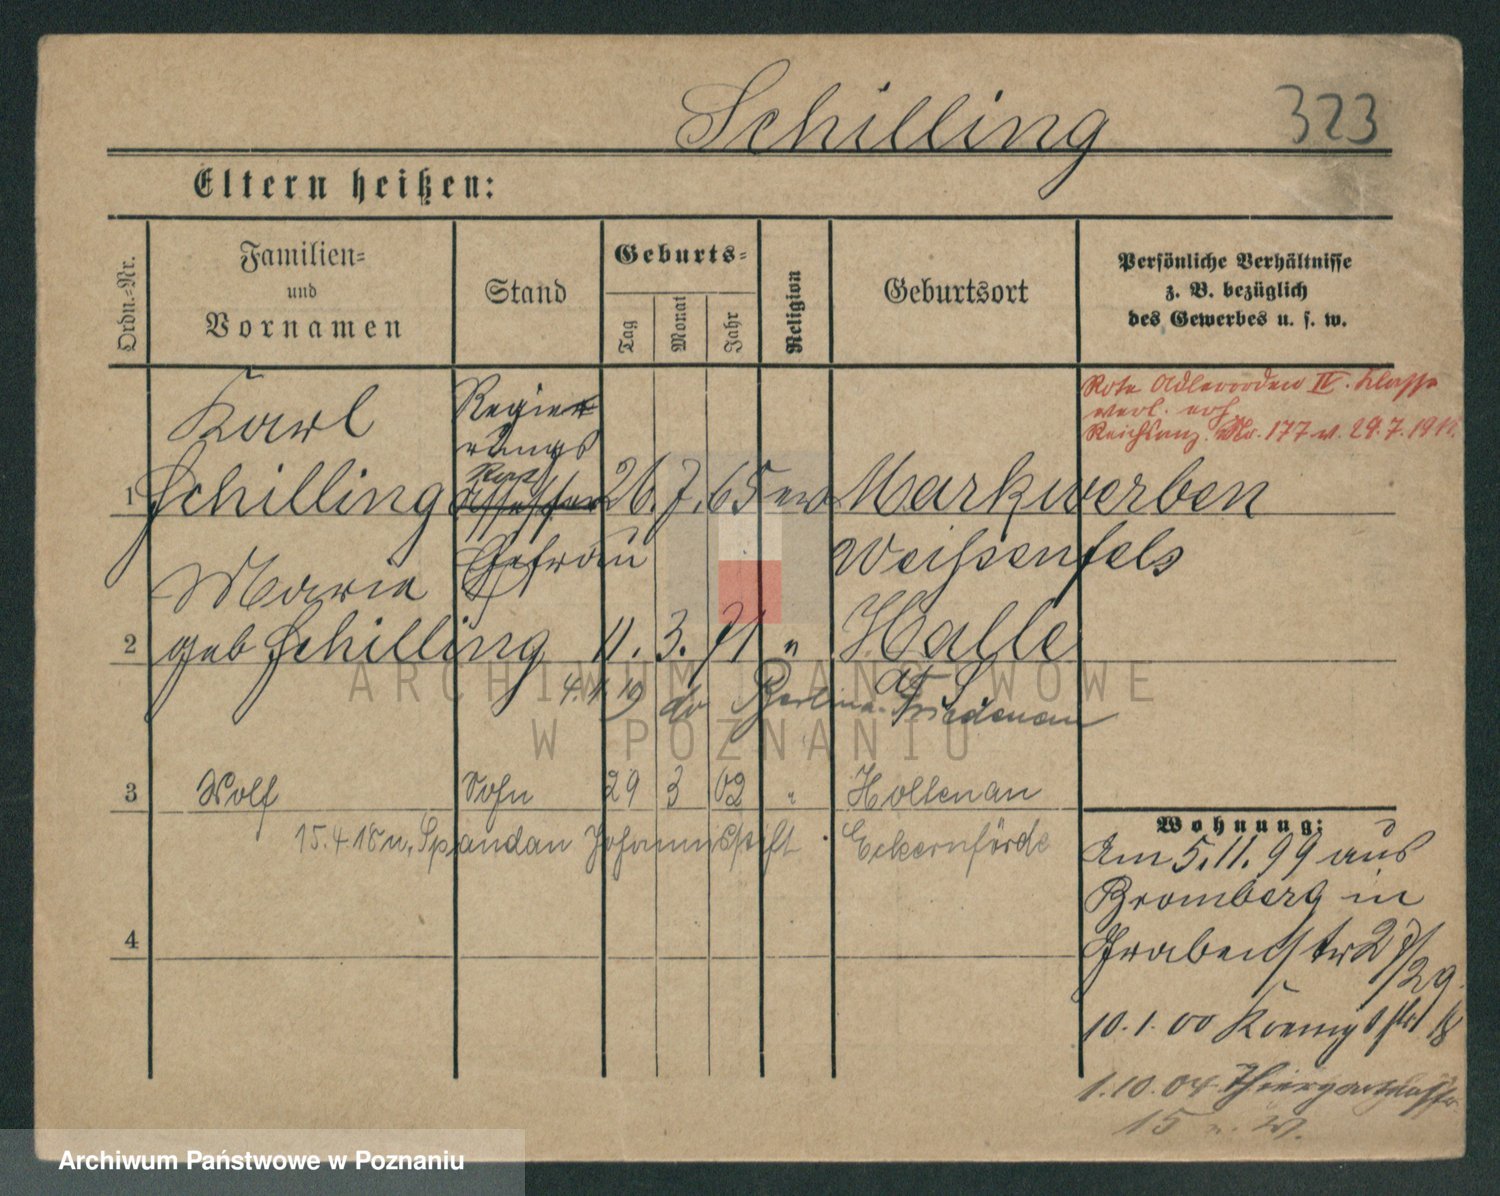 Schilling
323
Eltern heißen:
Ordn.-Nr.
Familien-
und
Vornamen
Stand
Geburts-
Tag
Monat
Jahr
Religion
Geburtsort
Persönliche Verhältnisse
z. B. bezüglich
des Gewerbes u. s. w.
Rote Adlerorden IV. Klasse
verl.
Reichsanz. Nr. 177 v. 29.7.19
Karl
Regie
rungs
Rat
1 Schilling Assessor 26. 7. 65 ev Markwerben
Ehefrau Weißenfels
Marie
2 geb Schilling 11. 3. 71 " Halle
a/S
4.1.19 do Berlin-Friedenau
3 Wolf Sohn 29 3 02 " Holtenau
15.4.18 n. Spandau Johannisstift Eckernförde
4
Wohnung:
Am 5.11.99 aus
Bromberg in
Grabenstr 27/29.
10.1.00 Koenigsstr 18
1.10.04 Thiergartenstr
15
ARCHIWUM PAŃSTWOWE
W POZNANIU
Archiwum Państwowe w Poznaniu